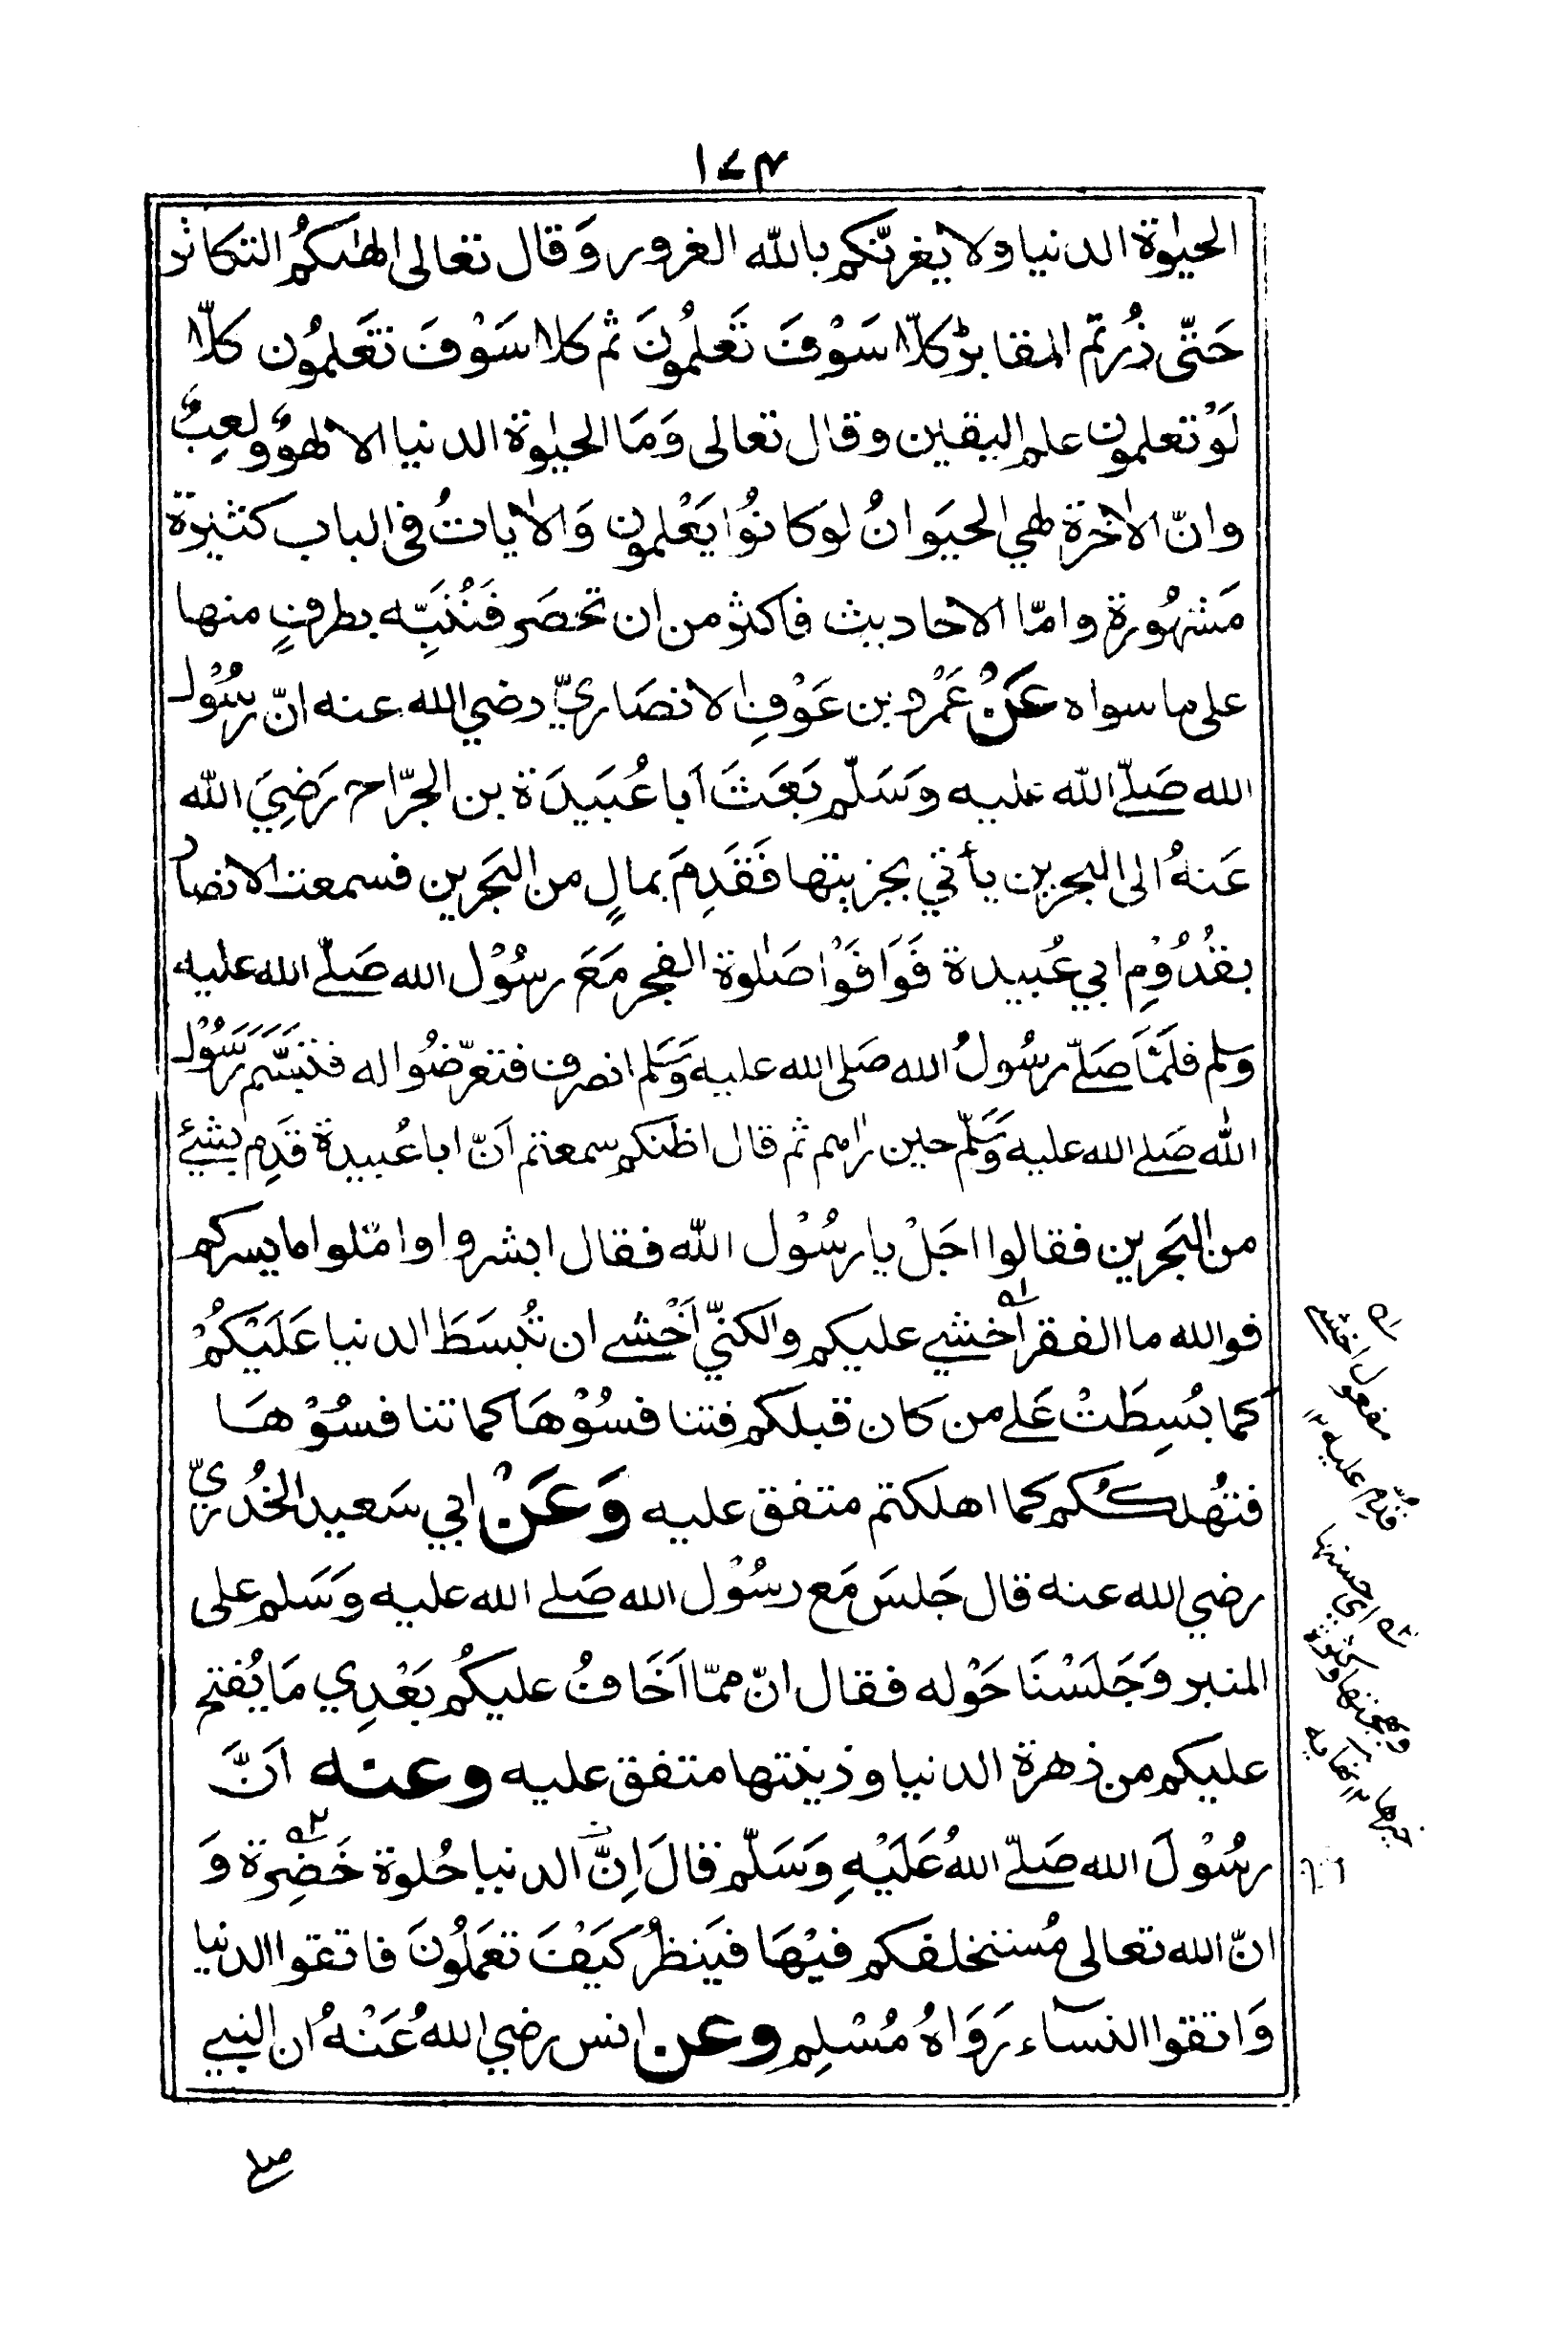 ١٧٤
الحيٰوة الدنيا ولا يغرنّكم بالله الغرور وَقال تعالى الهٰىكُم التكاثر
حَتّى زُرتم المقابر كلّا سَوْفَ تَعلمُونَ ثم كلا سَوْفَ تَعَلمُون كلّا
لَوْ تعلمون علم اليقين وقال تعالى وَمَا الحيٰوة الدنيا الا لهوٌ ولعِبٌ
وانّ الاٰخرة لهي الحيَوانُ لو كانُوا يَعْلمون وَالاٰياتُ في الباب كثيرة
مَشهُورة وامّا الاحاديث فاكثر من ان تحصَر فَنُنَبِّه بطرفٍ منها
على ما سواه عَنْ عَمْرو بن عَوْفِ الانصَاريّ رضي الله عنه انّ رسُوْل
الله صَلّى الله عليه وَسَلّم بَعَثَ اَبا عُبَيدَة بن الجرّاح رَضِيَ الله
عَنهُ الى البحرين يأتي بجزيتها فَقَدِمَ بمالٍ من البَحرين فسمعت الانصار
بقُدُوْمِ ابي عُبيدة فَوَافَوْا صَلٰوة الفجر مَعَ رسُوْل الله صَلّى الله عليه
وَسلم فلَمّا صَلّى رسُولُ الله صَلى الله عليه وَسَلم انصرف فتعرّضُوا له فتَبَسَّمَ رَسُوْل
الله صَلى الله عليه وَسَلّم حين راٰهم ثم قال اظنكم سمعتم اَنّ ابا عُبيدة قَدِم بشيْءٍ
من البَحرين فقالوا اجَلْ يا رسُوْل الله فقال ابشروا وامّلوا ما يسركم
فوالله ما الفقر اَخشي عليكم ولكنّي اَخْشي ان تُبسَطَ الدنيا عَلَيْكُمْ
كما بُسِطَتْ عَلى من كان قبلكم فتنافسُوْهَا كما تنافسُوْهَا
فتُهلكُكم كما اهلكتم متفق عليه وَعَنْ ابي سَعيد الخُدريّ
رضي الله عنه قال جَلسَ مَع رسُوْل الله صَلى الله عليه وَسَلم على
المنبر وَجَلَسْنَا حَوْله فقال انّ ممّا اَخَافُ عليكُم بَعْدِي مَا يُفتح
عليكم من زهرة الدنيا وزينتها متفق عليه وعنه اَنَّ
رسُوْلَ الله صَلّى اللهُ عَلَيْهِ وَسَلّم قالَ اِنَّ الدنيا حُلوة خَضِرة وَ
انّ الله تعالى مُستخلفكم فيْهَا فيَنظُر كَيْفَ تعمَلُونَ فاتقوا الدنيا
وَاتقوا النسَاء رَوَاهُ مُسْلِم وعن انس رضي اللهُ عَنْهُ ان النبي
صلى
له مفعول اخشى
قدّم عليه ١٢
٢ه اي حسنها
وبهجتها وكثرة
خيرها ١٢ نهايه